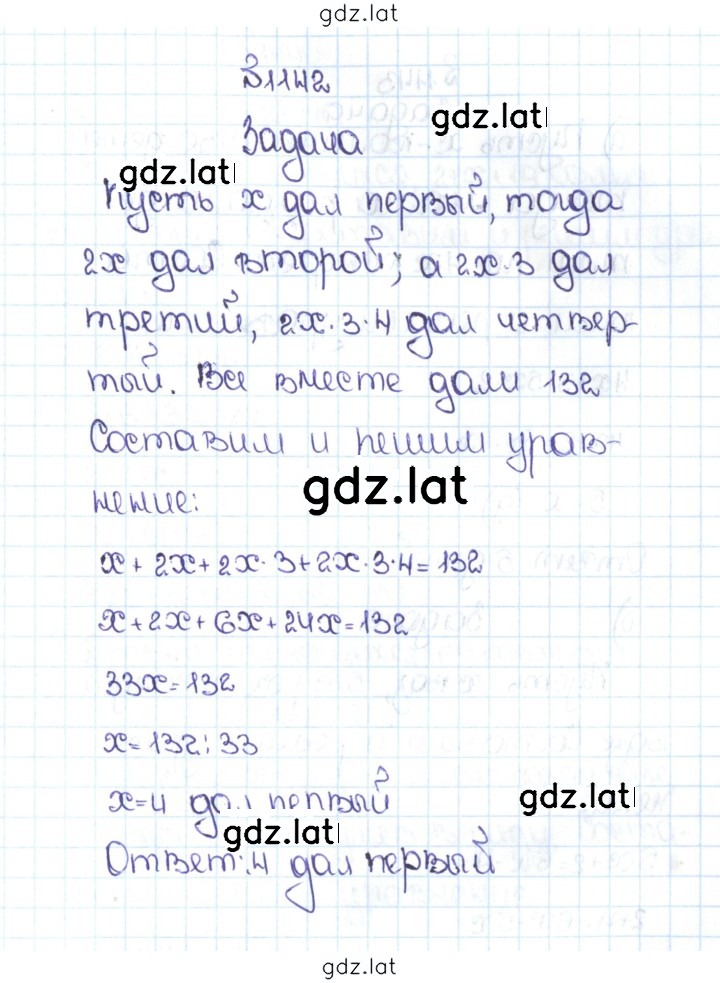 gdz.lat
№1142
gdz.lat
Задача
gdz.lat
Пусть x дал первый, тогда
2x дал второй; а 2x·3 дал
третий, 2x·3·4 дал четвер-
тый. Все вместе дали 132
Составим и решим урав-
gdz.lat
нение:
x + 2x + 2x·3 + 2x·3·4 = 132
x + 2x + 6x + 24x = 132
33x = 132
x = 132 : 33
gdz.lat
x = 4 дал первый
gdz.lat
Ответ: 4 дал первый
gdz.lat